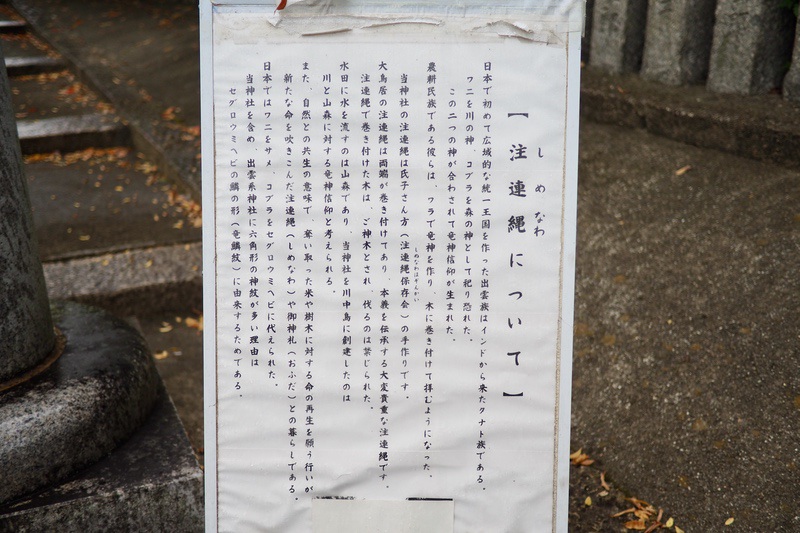 【注連縄について】
しめなわ
日本で初めて広域的な統一王国を作った出雲族はインドから来たクナト族である。
ワニを川の神、コブラを森の神として祀り恐れた。
この二つの神が合わされて竜神信仰が生まれた。
農耕民族である彼らは、ワラで竜神を作り、木に巻き付けて拝むようになった。
当神社の注連縄は氏子さん方（注連縄保存会）の手作りです。
しめなわほぞんかい
大鳥居の注連縄は両端が巻き付けてあり、本義を伝承する大変貴重な注連縄です。
注連縄で巻き付けた木は、ご神木とされ、伐るのは禁じられた。
水田に水を流すのは山森であり、当神社を川中島に創建したのは
川と山森に対する竜神信仰と考えられる。
また、自然との共生の意味で、奪い取った米や樹木に対する命の再生を願う行いが
新たな命を吹きこんだ注連縄（しめなわ）や御神札（おふだ）との暮らしである。
日本ではワニをサメ、コブラをセグロウミヘビに代えられた。
当神社を含め、出雲系神社に六角形の神紋が多い理由は
セグロウミヘビの鱗の形（竜鱗紋）に由来するためである。